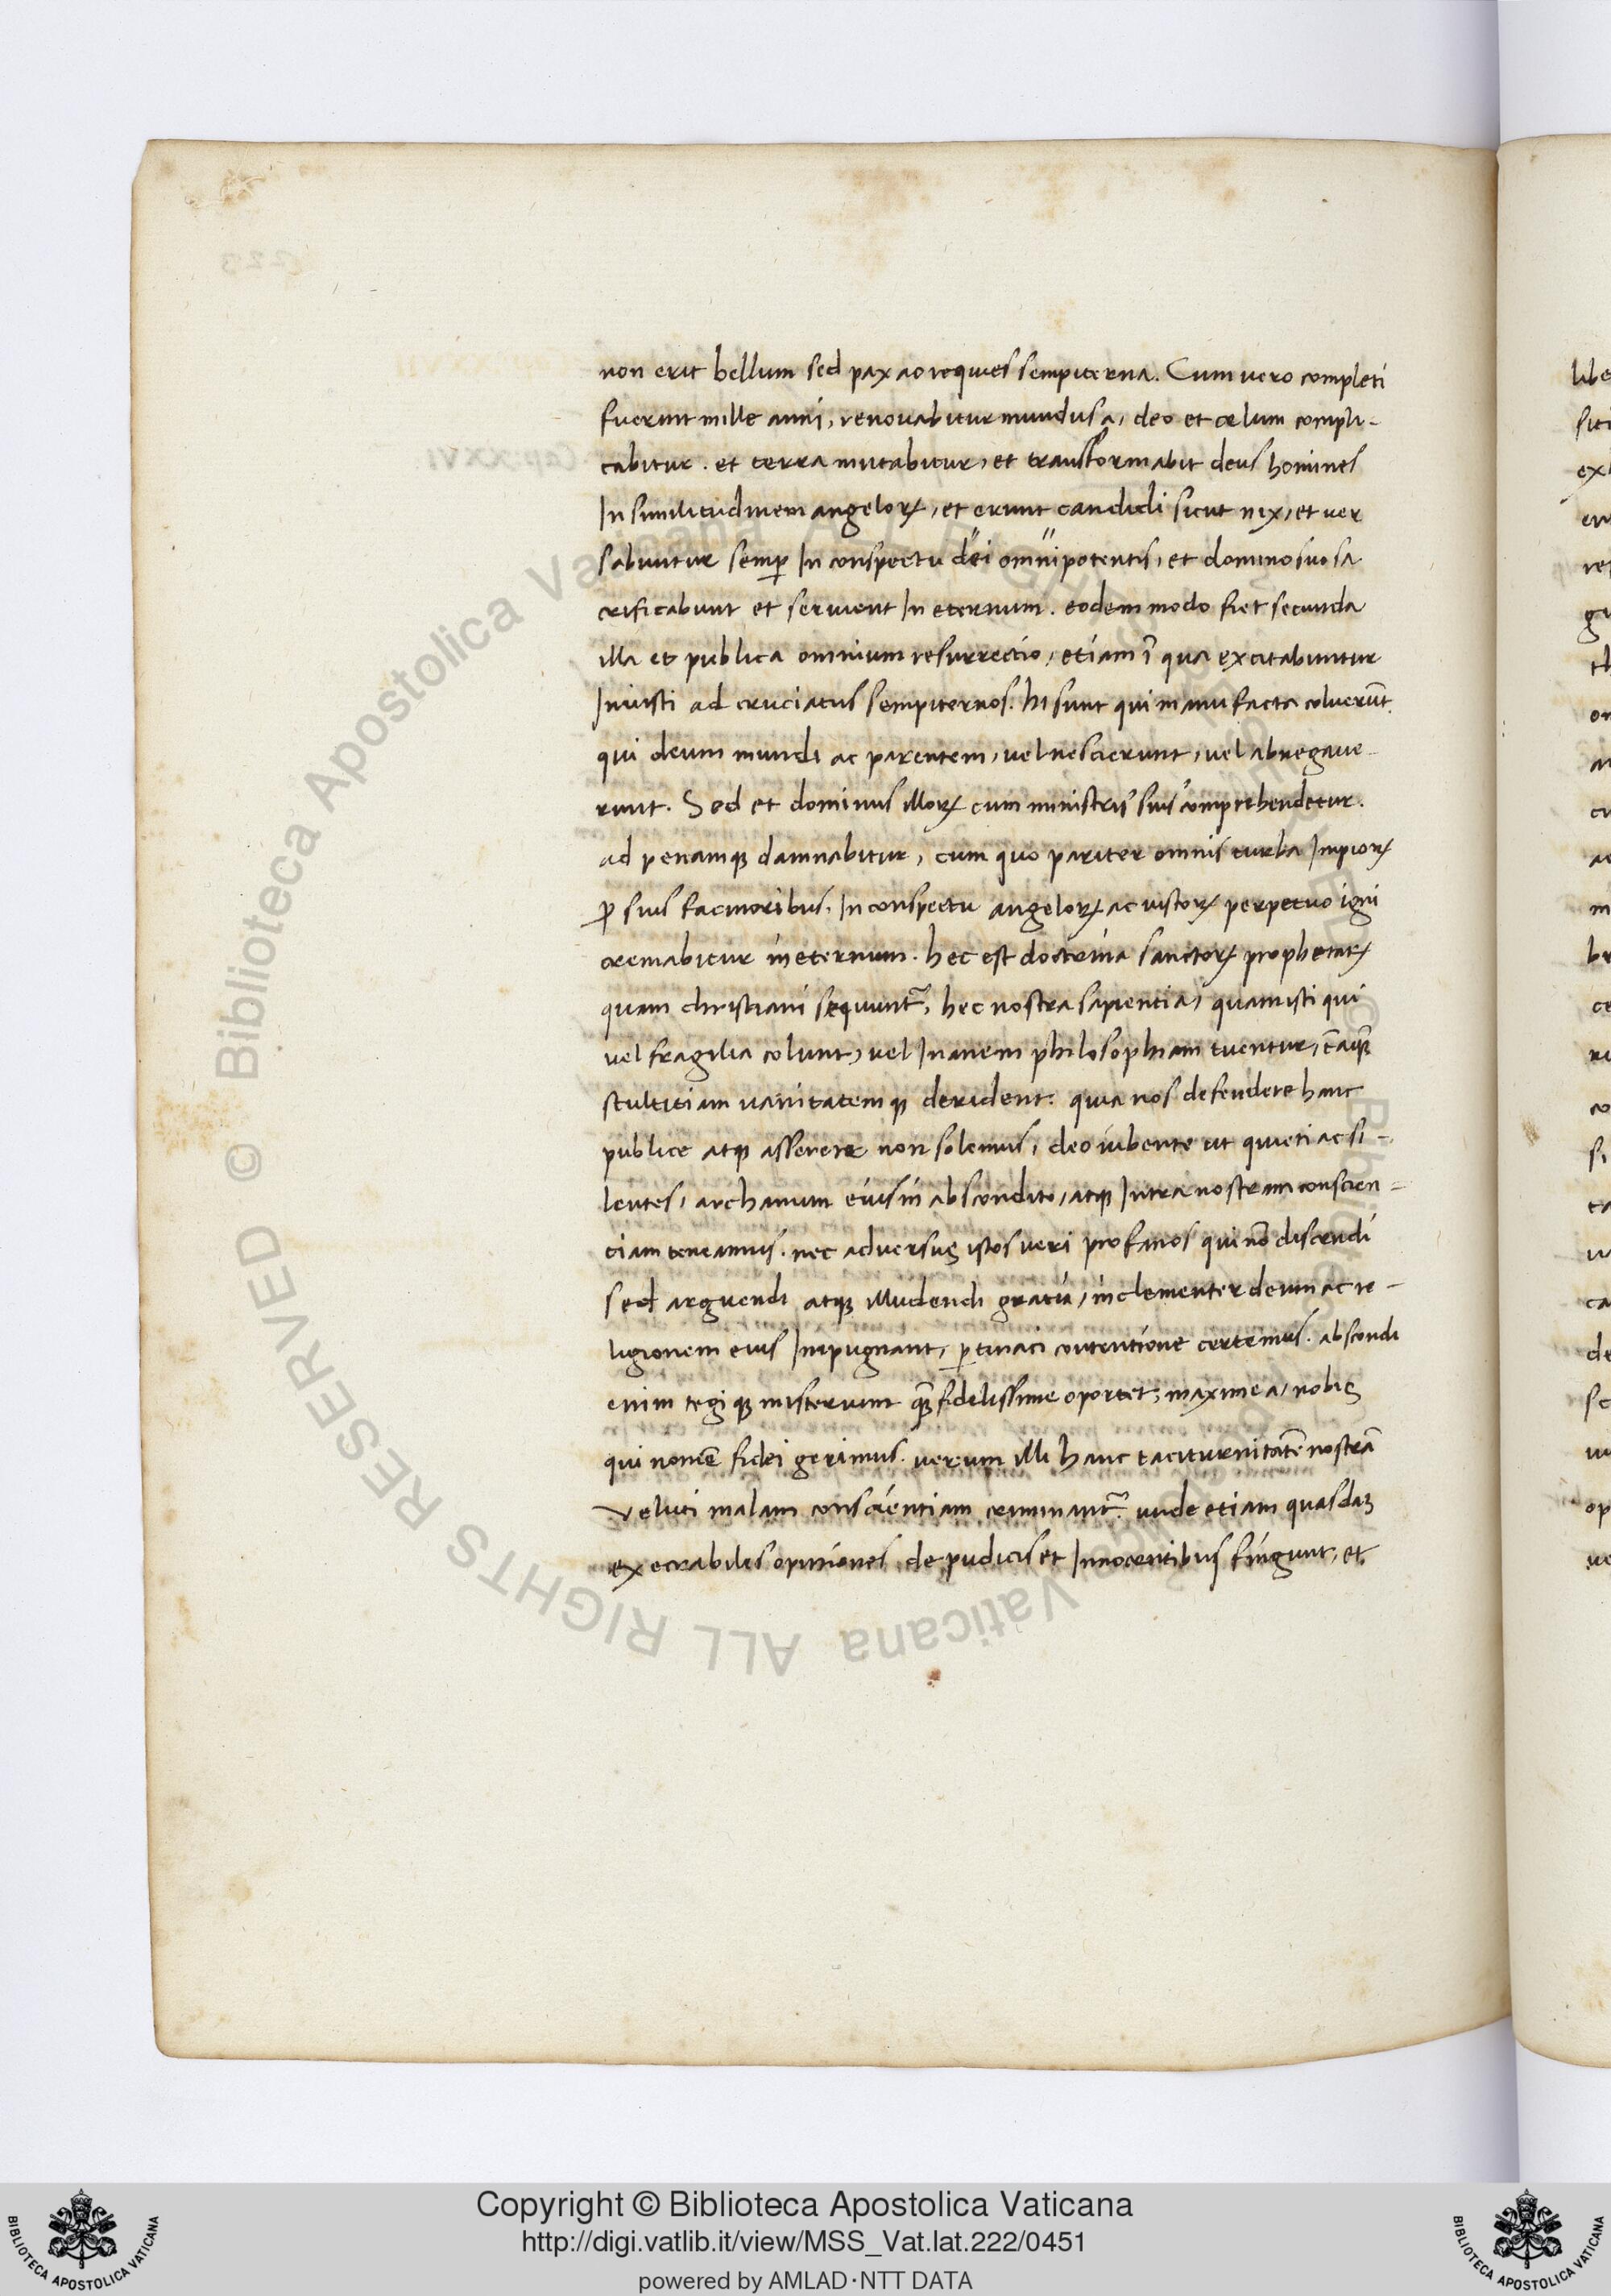 non erit bellum sed pax ac requies sempiterna. Cum vero completi
fuerint mille anni, renovabitur mundus a, deo et cœlum compli-
cabitur. et terra mutabitur, et transformabit deus homines
In similitudinem angeloꝝ, et erunt candidi sicut nix, et ver
sabuntur semꝑ In conspectu dei omnipotentis, et domino suo sa
crificabunt et servient In eternum. eodem modo fiet secunda
illa et publica omnium resurrectio, etiam ī qua excitabuntur
Iniusti ad cruciatus sempiternos. hi sunt qui manu facta coluerūt.
qui deum mundi ac parentem, vel nescierunt, vel abnegave-
runt. Sed et dominus illoꝝ cum ministris suis comprehendetur.
ad penamqꝫ damnabitur, cum quo pariter omnis turba Impioꝝ
ꝓ suis facinoribus, In conspectu angeloꝝ ac iustoꝝ perpetuo igni
cremabitur in eternum. hec est doctrina sanctoꝝ prophetaꝝ
quam christiani sequunt᷑, hec nostra sapientia, quam isti qui
vel fragilia colunt, vel Inanem philosophiam tuentur, tāqꝫ
stultitiam vanitatemqꝫ derident. quia nos defendere hanc
publice atqꝫ asserere non solemus, deo iubente ut quieti ac si-
lentes, archanum eius in abscondito, atqꝫ Intra nostram conscien-
tiam teneamus. nec adversus istos veri profanos qui nō discendi
sed arguendi atqꝫ illudendi gratia, inclementer deum ac re-
ligionem eius Impugnant, ꝑtinaci contentione certemus. abscondi
enim tegiqꝫ misterium qꝫ̄ fidelissime oportet, maxime a, nobis
qui nomē fidei gerimus. verum illi hanc taciturnitatē nostrā
veluti malam conscientiam criminant᷑. unde etiam quasdaꝫ
execrabiles opiniones de pudicis et Innocentibus fingunt, et
Copyright © Biblioteca Apostolica Vaticana
http://digi.vatlib.it/view/MSS_Vat.lat.222/0451
powered by AMLAD·NTT DATA
BIBLIOTECA APOSTOLICA VATICANA
BIBLIOTECA APOSTOLICA VATICANA
© Biblioteca Apostolica Vaticana ALL RIGHTS RESERVED